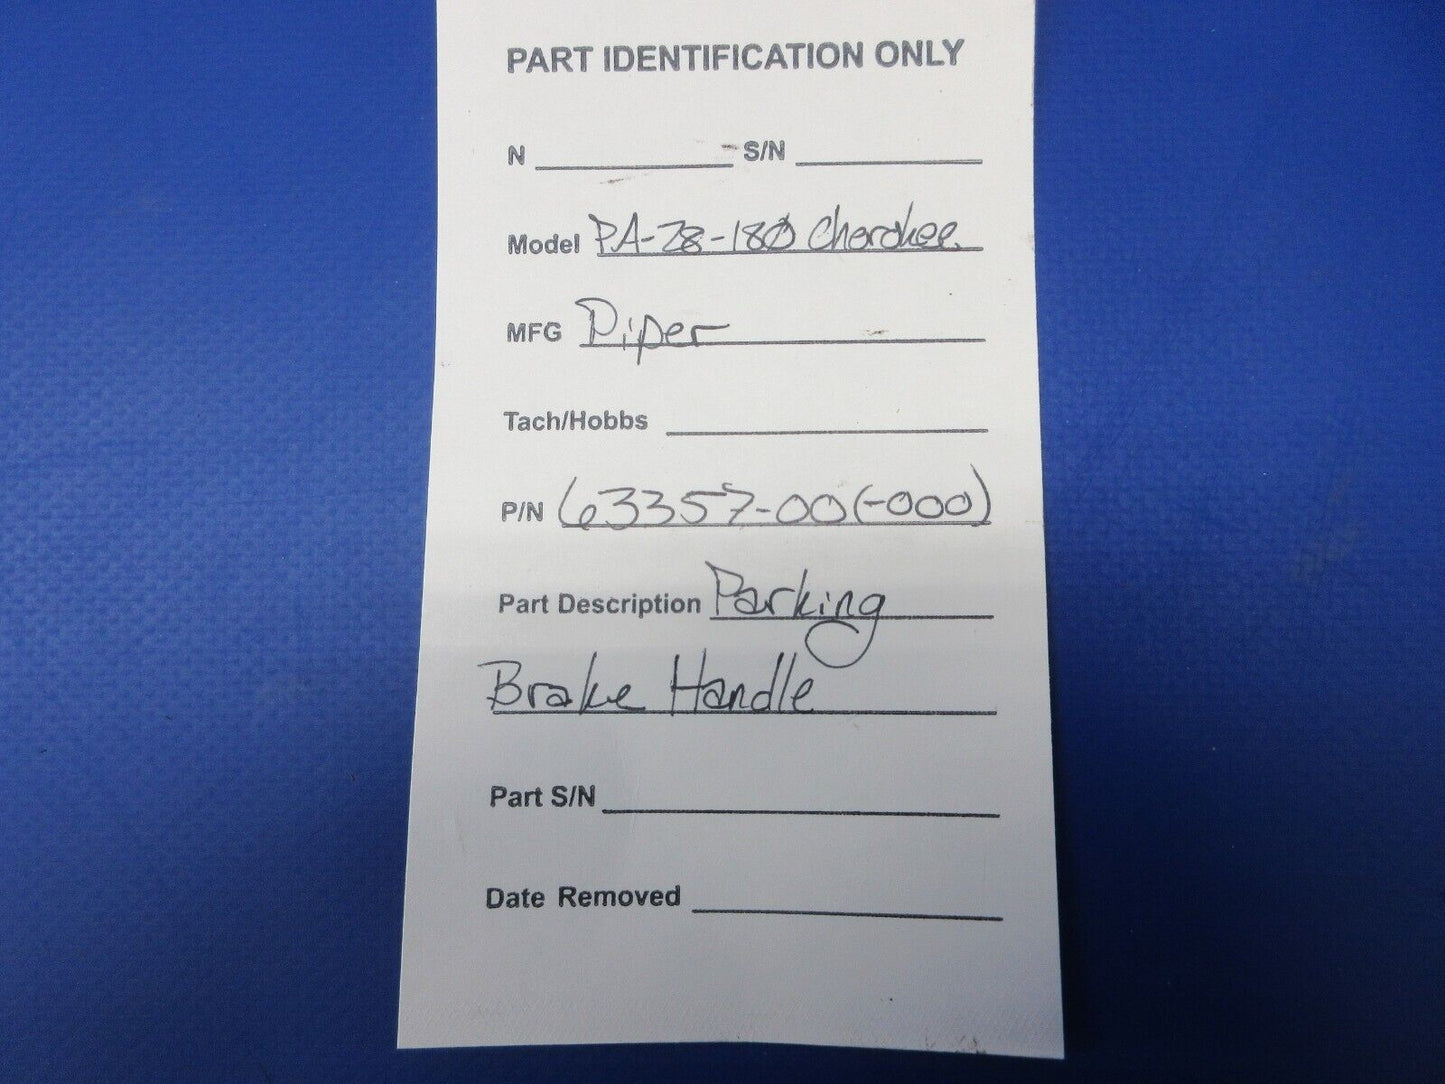 PART IDENTIFICATION ONLY
N S/N
Model PA-28-180 Cherokee
MFG Piper
Tach/Hobbs
P/N 63357-00(-000)
Part Description Parking
Brake Handle
Part S/N
Date Removed